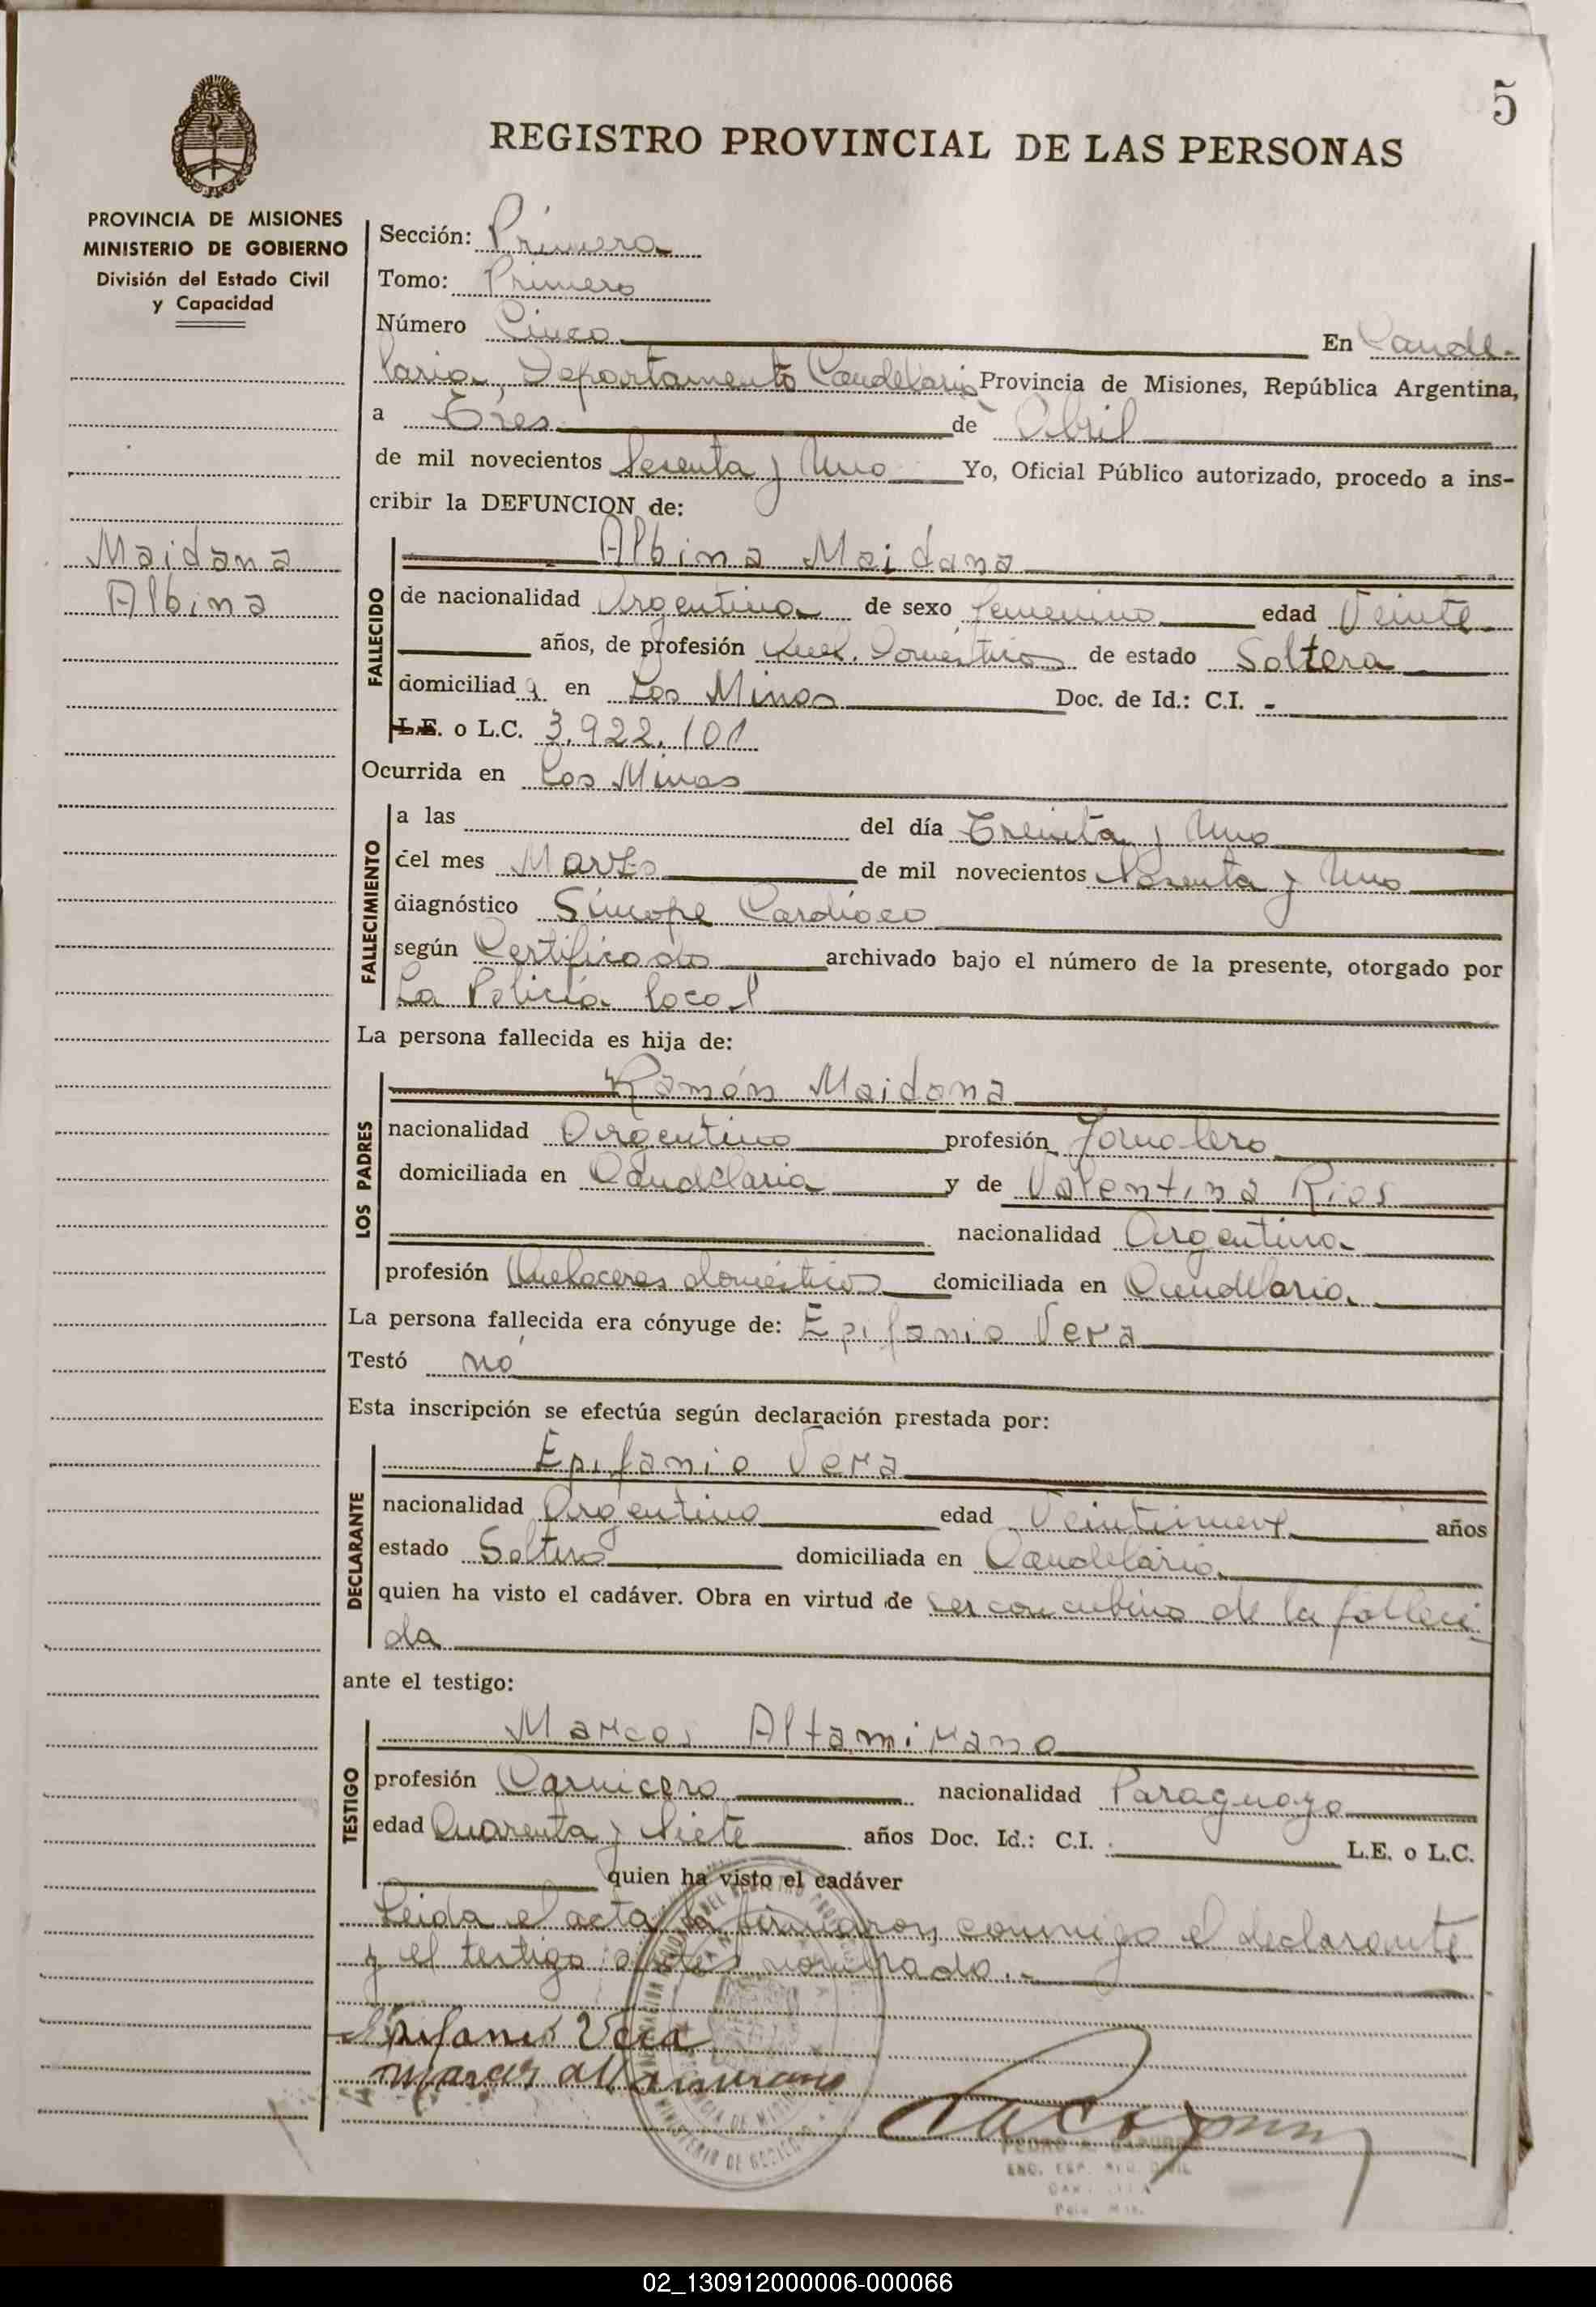 5
REGISTRO PROVINCIAL DE LAS PERSONAS
PROVINCIA DE MISIONES
MINISTERIO DE GOBIERNO
División del Estado Civil
y Capacidad
Maidana
Albina
Sección: Primera
Tomo: Primero
Número Cinco En Cande-
laria, Departamento Candelaria Provincia de Misiones, República Argentina,
a Tres de Abril
de mil novecientos Sesenta y Uno Yo, Oficial Público autorizado, procedo a ins-
cribir la DEFUNCION de:
Albina Maidana
FALLECIDO
de nacionalidad Argentina de sexo femenino edad Veinte
años, de profesión Quel. Domésticos de estado Soltera
domiciliada en Las Minas Doc. de Id.: C.I. -
L.E. o L.C. 3.922.101
Ocurrida en Las Minas
FALLECIMIENTO
a las del día Treinta y Uno
del mes Marzo de mil novecientos Sesenta y Uno
diagnóstico Síncope Cardíaco
según Certificado archivado bajo el número de la presente, otorgado por
La Policía local
La persona fallecida es hija de:
LOS PADRES
Ramón Maidana
nacionalidad Argentino profesión Jornalero
domiciliada en Candelaria y de Valentina Rios
nacionalidad Argentina
profesión Quehaceres domésticos domiciliada en Candelaria
La persona fallecida era cónyuge de: Epifanio Vera
Testó no
Esta inscripción se efectúa según declaración prestada por:
DECLARANTE
Epifanio Vera
nacionalidad Argentino edad Veintinueve años
estado Soltero domiciliada en Candelaria
quien ha visto el cadáver. Obra en virtud de ser concubino de la falleci-
da
ante el testigo:
TESTIGO
Marcos Altamirano
profesión Carnicero nacionalidad Paraguayo
edad Cuarenta y Siete años Doc. Id.: C.I. L.E. o L.C.
quien ha visto el cadáver
Leida el acta la firmaron conmigo el declarante
y el testigo antes nombrado.-
Epifanio Vera
Marcos Altamirano
MINISTERIO DE GOBIERNO
02_130912000006-000066